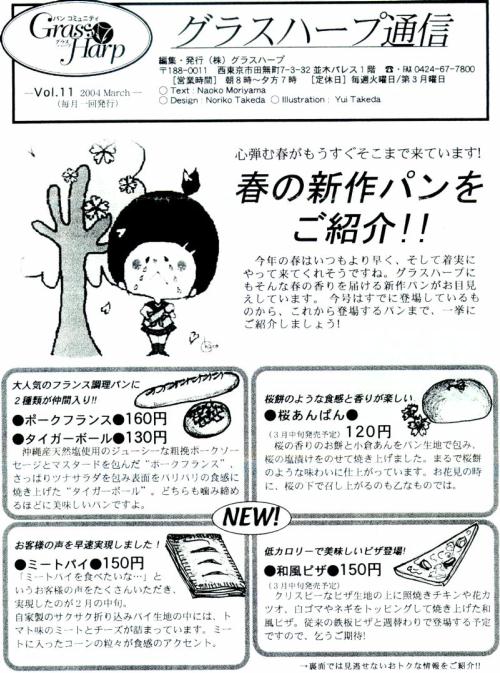 パン コミュニティ
Grass Harp
グラスハープ
―Vol.11 2004 March―
(毎月一回発行)
グラスハープ通信
編集・発行(株)グラスハープ
〒188-0011 西東京市田無町7-3-32 並木パレス1階 ☎・FAX 0424-67-7800
[営業時間] 朝8時~夕方7時 [定休日] 毎週火曜日/第3月曜日
○ Text : Naoko Moriyama
○ Design : Noriko Takeda ○ Illustration : Yui Takeda
心弾む春がもうすぐそこまで来ています!
春の新作パンを
ご紹介!!
今年の春はいつもより早く、そして着実に
やって来てくれそうですね。グラスハープに
もそんな春の香りを届ける新作パンがお目
見えしています。今号はすでに登場しているも
のから、これから登場するパンまで、一挙に
ご紹介しましょう!
大人気のフランス調理パンに
2種類が仲間入り!!
●ポークフランス●160円
●タイガーボール●130円
沖縄産天然塩使用のジューシーな粗挽ポークソー
セージとマスタードを包んだ“ポークフランス”、
さっぱりツナサラダを包み表面をパリパリの食感に
焼き上げた“タイガーボール”。どちらも噛み締め
るほどに美味しいパンですよ。
桜餅のような食感と香りが楽しい
●桜あんぱん●
(3月中旬発売予定) 120円
桜の香りのお餅と小倉あんをパン生地で包み、
桜の塩漬けをのせて焼き上げました。まるで桜餅
のような味わいに仕上がっています。お花見の時
に、桜の下で召し上がるのも乙なものでは。
NEW!
お客様の声を早速実現しました!
●ミートパイ●150円
「ミートパイを食べたいな…」と
いうお客様の声をたくさんいただき、
実現したのが2月の中旬。
自家製のサクサク折り込みパイ生地の中には、ト
マト味のミートとチーズが詰まっています。ミー
トに入ったコーンの粒々が食感のアクセント。
低カロリーで美味しいピザ登場!
●和風ピザ●150円
(3月中旬発売予定)
クリスピーなピザ生地の上に照焼きチキンや花カ
ツオ、白ゴマやネギをトッピングして焼き上げた和
風ピザ。従来の鉄板ピザと週替わりで登場する予定
ですので、乞うご期待!
→裏面では見逃せないおトクな情報をご紹介!!